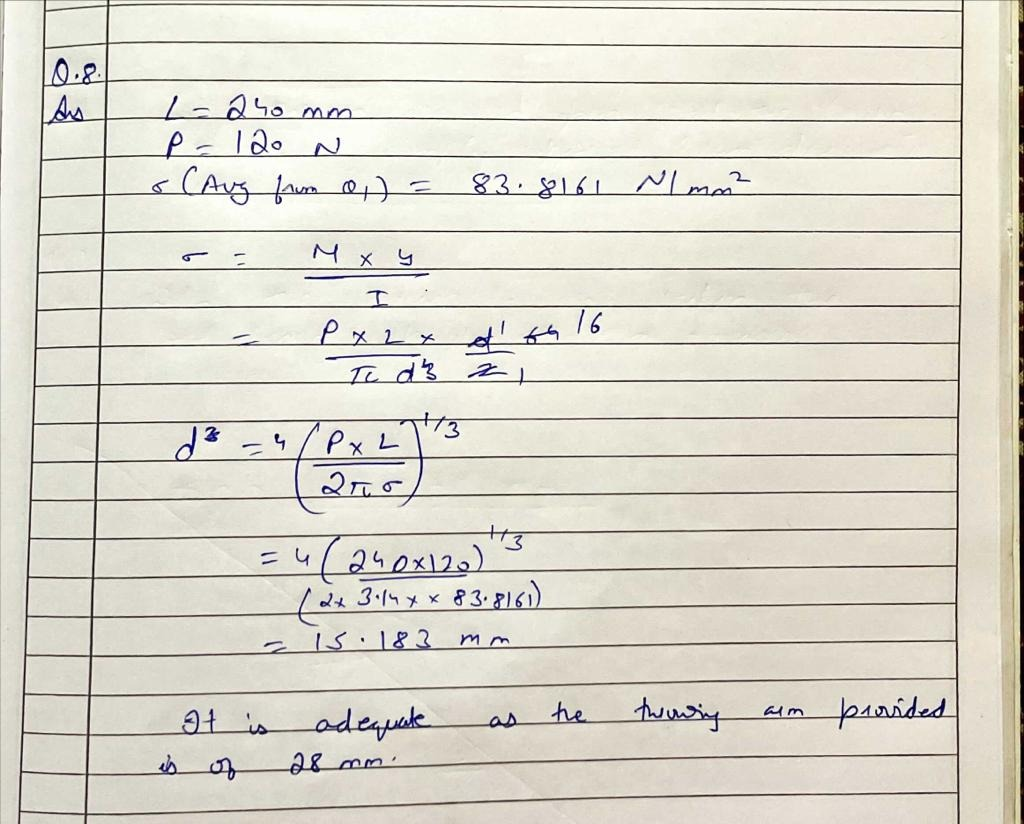 Q.8.
Ans L = 240 mm
P = 120 N
σ (Avg from Q1) = 83.8161 N/mm²
σ = M × y / I
= P × L × d 64 16 / π d⁴3 2 1
d = 4 (P × L / 2πσ)^1/3
= 4 (240×120)^1/3
(2× 3.14 × × 83.8161)
= 15.183 mm
It is adequate as the arm provided
is of 28 mm.